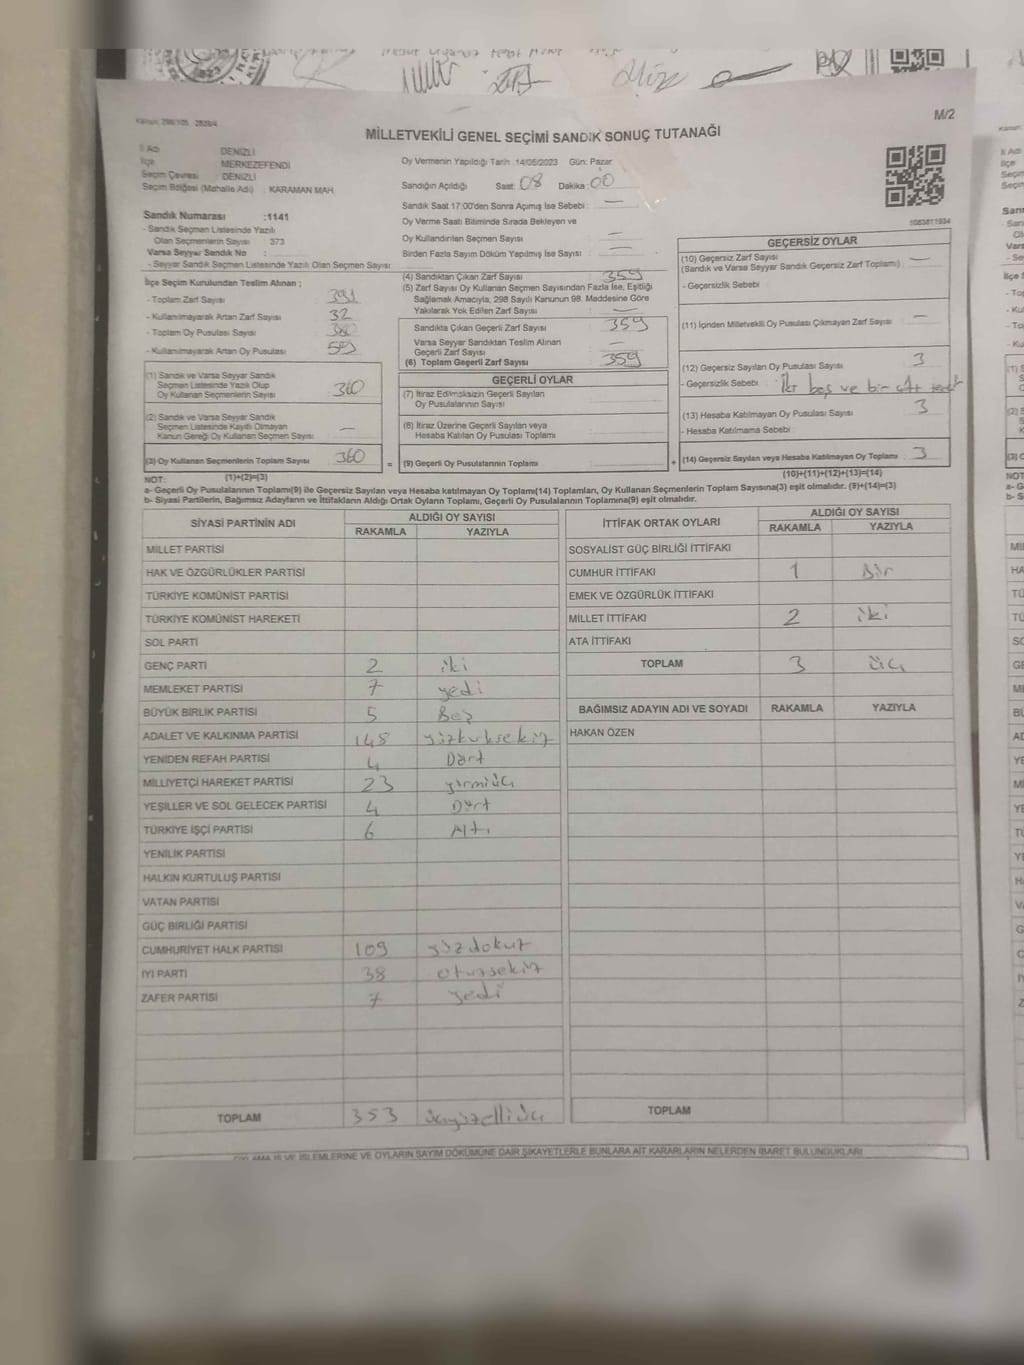 M/2
MİLLETVEKİLİ GENEL SEÇİMİ SANDIK SONUÇ TUTANAĞI
İl Adı DENİZLİ
İlçe : MERKEZEFENDİ
Seçim Çevresi : DENİZLİ
Seçim Bölgesi (Mahalle Adı) : KARAMAN MAH.
Sandık Numarası :1141
- Sandık Seçmen Listesinde Yazılı
Olan Seçmenlerin Sayısı 373
Varsa Seyyar Sandık No :
- Seyyar Sandık Seçmen Listesinde Yazılı Olan Seçmen Sayısı:
İlçe Seçim Kurulundan Teslim Alınan ;
- Toplam Zarf Sayısı 391
- Kullanılmayarak Artan Zarf Sayısı 32
- Toplam Oy Pusulası Sayısı
- Kullanılmayarak Artan Oy Pusulası
(1) Sandık ve Varsa Seyyar Sandık
Seçmen Listesinde Yazılı Olup
Oy Kullanan Seçmenlerin Sayısı 360
(2) Sandık ve Varsa Seyyar Sandık
Seçmen Listesinde Kayıtlı Olmayan
Kanun Gereği Oy Kullanan Seçmen Sayısı —
(3) Oy Kullanan Seçmenlerin Toplam Sayısı 360
(1)+(2)=(3)
Oy Vermenin Yapıldığı Tarih : 14/05/2023 Gün: Pazar
Sandığın Açıldığı Saat: 08 Dakika: 00
Sandık Saat 17:00'den Sonra Açılmış İse Sebebi : —
Oy Verme Saati Bitiminde Sırada Bekleyen ve
Oy Kullandırılan Seçmen Sayısı —
Birden Fazla Sayım Döküm Yapılmış İse Sayısı : —
(4) Sandıktan Çıkan Zarf Sayısı 359
(5) Zarf Sayısı Oy Kullanan Seçmen Sayısından Fazla İse, Eşitliği
Sağlamak Amacıyla, 298 Sayılı Kanunun 98. Maddesine Göre
Yakılarak Yok Edilen Zarf Sayısı —
Sandıkta Çıkan Geçerli Zarf Sayısı 359
Varsa Seyyar Sandıktan Teslim Alınan
Geçerli Zarf Sayısı —
(6) Toplam Geçerli Zarf Sayısı 359
GEÇERLİ OYLAR
(7) İtiraz Edilmeksizin Geçerli Sayılan
Oy Pusulalarının Sayısı
(8) İtiraz Üzerine Geçerli Sayılan veya
Hesaba Katılan Oy Pusulası Toplamı
= (9) Geçerli Oy Pusulalarının Toplamı +
1083811934
GEÇERSİZ OYLAR
(10) Geçersiz Zarf Sayısı
(Sandık ve Varsa Seyyar Sandık Geçersiz Zarf Toplamı) : —
- Geçersizlik Sebebi :
(11) İçinden Milletvekili Oy Pusulası Çıkmayan Zarf Sayısı —
(12) Geçersiz Sayılan Oy Pusulası Sayısı 3
- Geçersizlik Sebebi : iki boş ve bir çift
(13) Hesaba Katılmayan Oy Pusulası Sayısı 3
- Hesaba Katılmama Sebebi :
(14) Geçersiz Sayılan veya Hesaba Katılmayan Oy Toplamı 3
(10)+(11)+(12)+(13)=(14)
NOT:
a- Geçerli Oy Pusulalarının Toplamı(9) ile Geçersiz Sayılan veya Hesaba katılmayan Oy Toplamı(14) Toplamları, Oy Kullanan Seçmenlerin Toplam Sayısına(3) eşit olmalıdır. (9)+(14)=(3)
b- Siyasi Partilerin, Bağımsız Adayların ve İttifakların Aldığı Ortak Oyların Toplamı, Geçerli Oy Pusulalarının Toplamına(9) eşit olmalıdır.
SİYASİ PARTİNİN ADI ALDIĞI OY SAYISI
RAKAMLA YAZIYLA
MİLLET PARTİSİ
HAK VE ÖZGÜRLÜKLER PARTİSİ
TÜRKİYE KOMÜNİST PARTİSİ
TÜRKİYE KOMÜNİST HAREKETİ
SOL PARTİ
GENÇ PARTİ 2 iki
MEMLEKET PARTİSİ 7 yedi
BÜYÜK BİRLİK PARTİSİ 5 Beş
ADALET VE KALKINMA PARTİSİ 148 yüzkırksekiz
YENİDEN REFAH PARTİSİ 4 Dört
MİLLİYETÇİ HAREKET PARTİSİ 23 yirmiüç
YEŞİLLER VE SOL GELECEK PARTİSİ 4 Dört
TÜRKİYE İŞÇİ PARTİSİ 6 Altı
YENİLİK PARTİSİ
HALKIN KURTULUŞ PARTİSİ
VATAN PARTİSİ
GÜÇ BİRLİĞİ PARTİSİ
CUMHURİYET HALK PARTİSİ 109 yüzdokuz
İYİ PARTİ 38 otuzsekiz
ZAFER PARTİSİ 7 yedi
TOPLAM 353 üçyüzelliüç
İTTİFAK ORTAK OYLARI ALDIĞI OY SAYISI
RAKAMLA YAZIYLA
SOSYALİST GÜÇ BİRLİĞİ İTTİFAKI
CUMHUR İTTİFAKI 1 Bir
EMEK VE ÖZGÜRLÜK İTTİFAKI
MİLLET İTTİFAKI 2 iki
ATA İTTİFAKI
TOPLAM 3 üç
BAĞIMSIZ ADAYIN ADI VE SOYADI RAKAMLA YAZIYLA
HAKAN ÖZEN
TOPLAM
İŞ VE İŞLEMLERİNE VE OYLARIN SAYIM DÖKÜMÜNE DAİR ŞİKAYETLERLE BUNLARA AİT KARARLARIN NELERDEN İBARET BULUNDUKLARI